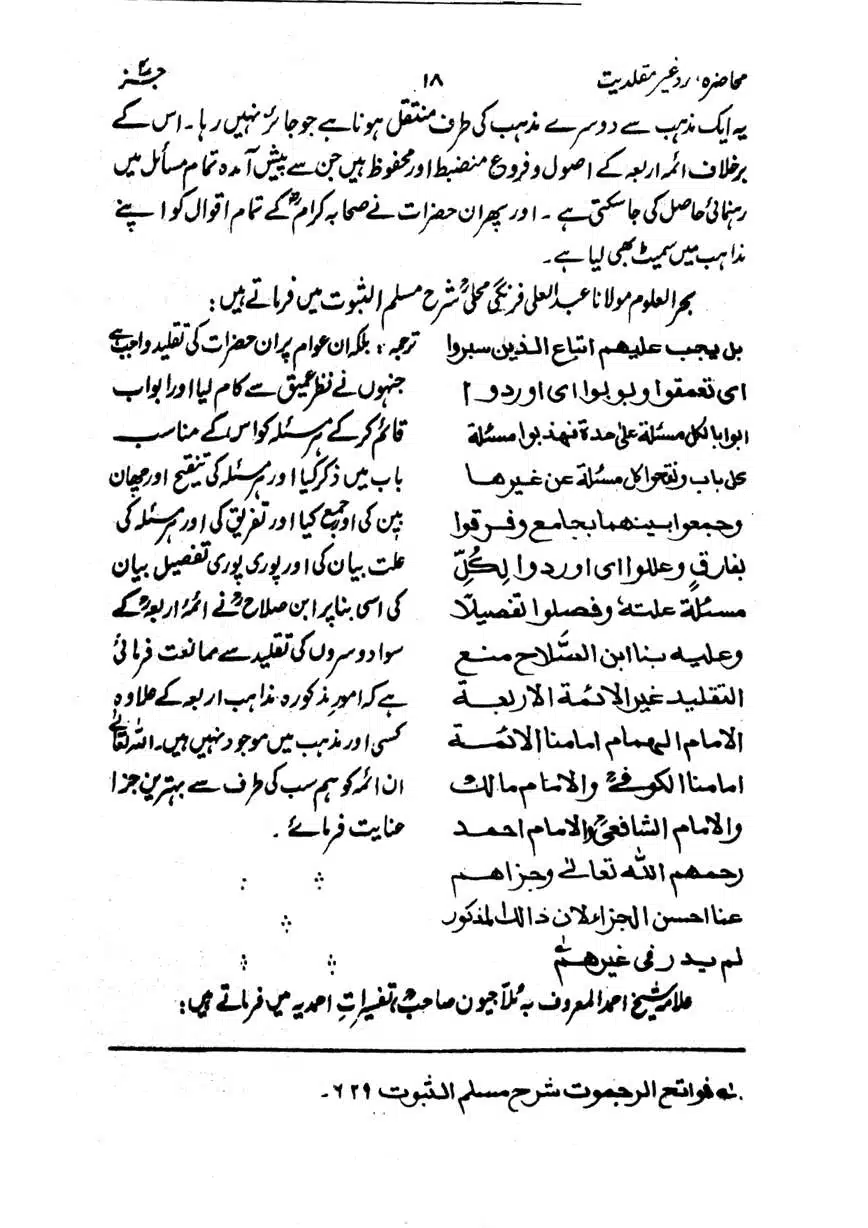 محاضرہ، رد غیر مقلدیت
۱۸
جزء ۳
یہ ایک مذہب سے دوسرے مذہب کی طرف منتقل ہونا ہے جو جائز نہیں رہا۔ اس کے
برخلاف ائمہ اربعہ کے اصول و فروع منضبط اور محفوظ ہیں جن سے پیش آمدہ تمام مسائل میں
رہنمائی حاصل کی جا سکتی ہے۔ اور پھر ان حضرات نے صحابہ کرامؓ کے تمام اقوال کو اپنے
مذاہب میں سمیٹ بھی لیا ہے۔
بحر العلوم مولانا عبد العلی فرنگی محلیؒ شرح مسلم الثبوت میں فرماتے ہیں:
بل یجب علیہم اتباع الذین سبروا
ای تعمقوا و بوبوا ای اوردوا
ابوابا لکل مسئلۃ علی حدۃ فہذبوا مسئلۃ
کل باب ونقحوا کل مسئلۃ عن غیرہا
وجمعوا بینہما بجامع وفرقوا
بفارقٍ وعللوا ای اوردوا لِکُلِّ
مسئلۃ علتہٗ وفصلوا تفصیلًا
وعلیہ بنا ابن السَّلاح منع
التقلید غیر الائمۃ الاربعۃ
الامام الہمام امامنا الائمۃ
امامنا الکوفیؒ والامام مالکؒ
والامام الشافعیؒ والامام احمد
رحمہم اللہ تعالٰی وجزاہم
عنا احسن الجزاء لان ذالک المذکور
لم یدر فی غیرہم لہ
ترجمہ: بلکہ ان عوام پر ان حضرات کی تقلید واجب ہے
جنہوں نے نظر عمیق سے کام لیا اور ابواب
قائم کر کے ہر مسئلہ کو اس کے مناسب
باب میں ذکر کیا اور ہر مسئلہ کی تنقیح اور چھان
بین کی اور جمع کیا اور تفریق کی اور ہر مسئلہ کی
علت بیان کی اور پوری پوری تفصیل بیان
کی اسی بنا پر ابن صلاحؒ نے ائمۂ اربعہؒ کے
سوا دوسروں کی تقلید سے ممانعت فرمائی
ہے کہ امور مذکورہ، مذاہب اربعہ کے علاوہ
کسی اور مذہب میں موجود نہیں ہیں۔ اللہ تعالٰی
ان ائمہ کو ہم سب کی طرف سے بہترین جزا
عنایت فرمائے۔
علامہ شیخ احمد المعروف بہ مُلّا جیون صاحبؒ، تفسیراتِ احمدیہ میں فرماتے ہیں:
لہ فواتح الرحموت شرح مسلم الثبوت ۶۲۹۔